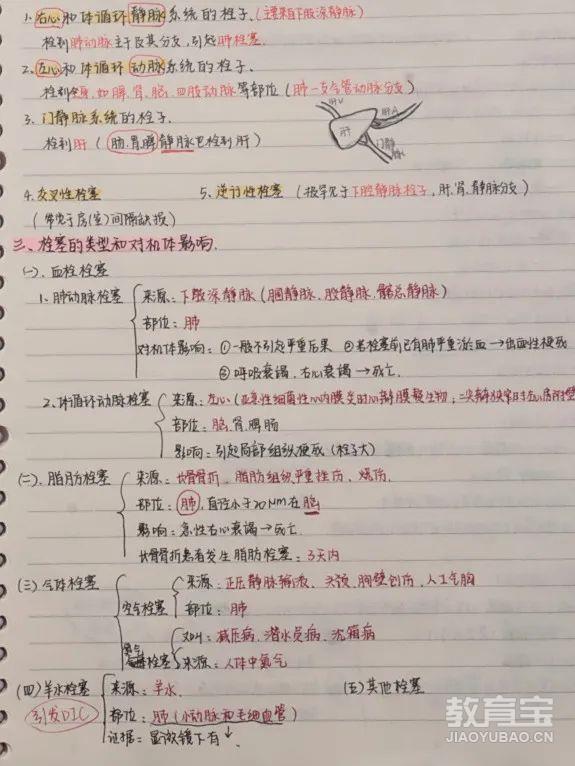 1. 右心和体循环静脉系统的栓子.(主要来自下肢深静脉)
栓到肺动脉主干及其分支,引起肺栓塞.
2. 左心和体循环动脉系统的栓子.
栓到全身,如脾.肾.脑.四肢动脉等部位(肺-支气管动脉分支)
3. 门静脉系统的栓子.
栓到肝(肠.胃.脾静脉也栓到肝)
肝V
肝A
肝
门静脉
4. 交叉性栓塞 5. 逆行性栓塞(极罕见于下腔静脉栓子,肝.肾.静脉分支)
(常见于房(室)间隔缺损)
三、栓塞的类型和对机体影响.
(一). 血栓栓塞
1. 肺动脉栓塞 来源:下肢深静脉(腘静脉.股静脉.髂总静脉)
部位:肺
对机体影响:①一般不引起严重后果 ②若栓塞前已有肺严重淤血→出血性梗死
③呼吸衰竭.右心衰竭→死亡.
2. 体循环动脉栓塞 来源:左心(亚急性细菌性心内膜炎时心瓣膜赘生物;二尖瓣狭窄时左心房附壁
部位:脑.肾.脾.肠
影响:引起局部组织梗死(栓子大)
(二). 脂肪栓塞 来源:长骨骨折.脂肪组织严重挫伤.烧伤.
部位:肺,直径小于20μm在脑
影响:急性右心衰竭→死亡.
长骨骨折患者发生脂肪栓塞:3天内
(三) 气体栓塞
空气栓塞 来源:正压静脉输液、头颈,胸壁创伤,人工气胸
部位:肺
氮气栓塞 又叫:减压病,潜水员病,沉箱病
来源:人体中氮气
(四) 羊水栓塞 来源:羊水. (五) 其他栓塞
引发DIC
部位:肺(小动脉和毛细血管)
证据:显微镜下有↓.
教育宝
JIAOYUBAO.CN